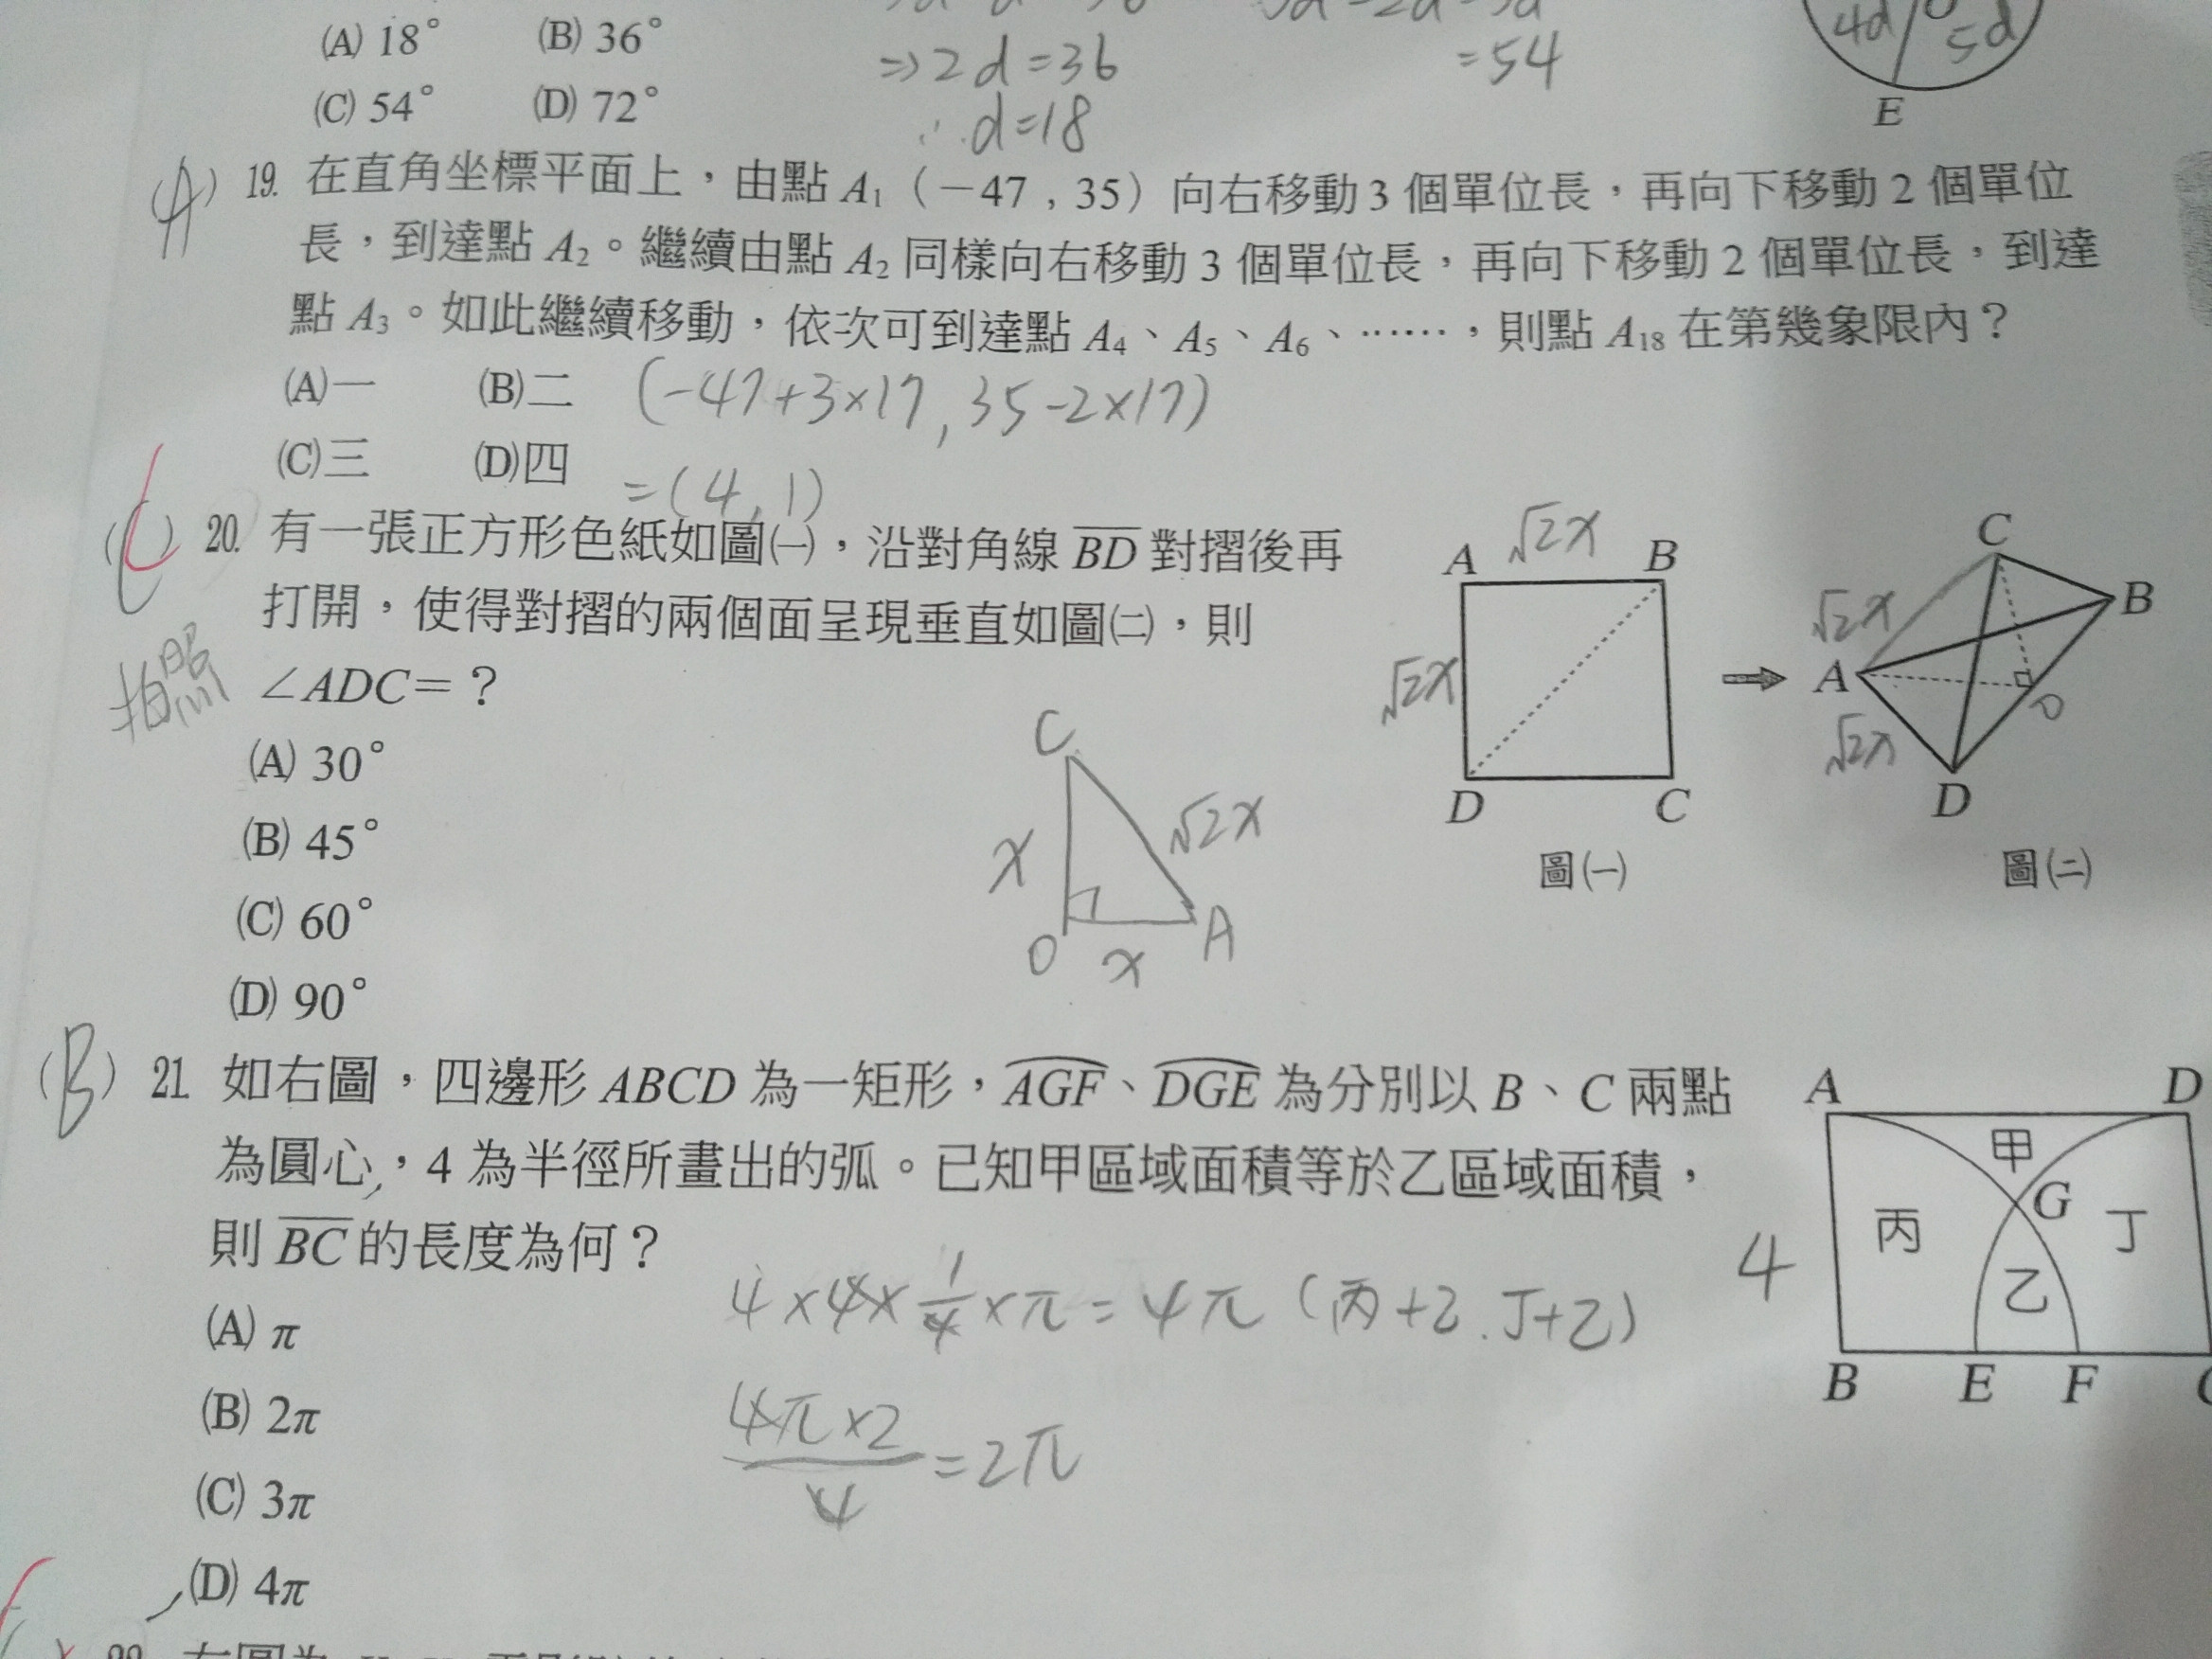 (A) 18° (B) 36°
⇒2d=36 =54
4d 5d
(C) 54° (D) 72°
∴d=18
E
(A) 19. 在直角坐標平面上,由點 A₁(-47,35)向右移動 3 個單位長,再向下移動 2 個單位
長,到達點 A₂。繼續由點 A₂ 同樣向右移動 3 個單位長,再向下移動 2 個單位長,到達
點 A₃。如此繼續移動,依次可到達點 A₄、A₅、A₆、……,則點 A₁₈ 在第幾象限內?
(A)一 (B)二 (-47+3×17, 35-2×17)
(C)三 (D)四
=(4,1)
(C) 20. 有一張正方形色紙如圖㈠,沿對角線 BD 對摺後再
打開,使得對摺的兩個面呈現垂直如圖㈡,則
拍照 ∠ADC=?
(A) 30°
(B) 45°
(C) 60°
(D) 90°
C
x √2x
O x A
√2x
A B
√2x
D C
圖㈠
C
√2x B
A
O
√2x
D
圖㈡
(B) 21. 如右圖,四邊形 ABCD 為一矩形,AGF、DGE 為分別以 B、C 兩點
為圓心,4 為半徑所畫出的弧。已知甲區域面積等於乙區域面積,
則 BC 的長度為何?
(A) π
(B) 2π
(C) 3π
(D) 4π
4×4×1/4×π=4π(丙+乙.丁+乙)
4π×2/4=2π
A D
甲
G
丙 丁
4
乙
B E F